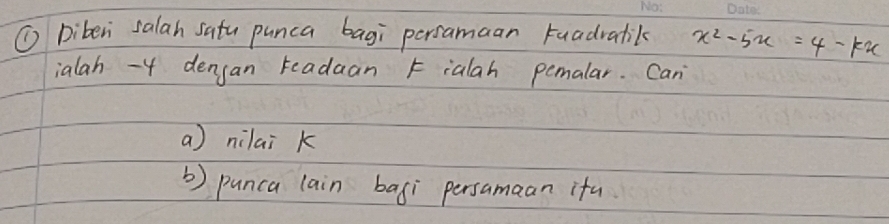 No: Date:
① Diberi salah satu punca bagi persamaan kuadratik x² - 5x = 4 - kx
ialah -4 dengan keadaan k ialah pemalar. Cari
a) nilai k
b) punca lain bagi persamaan itu.